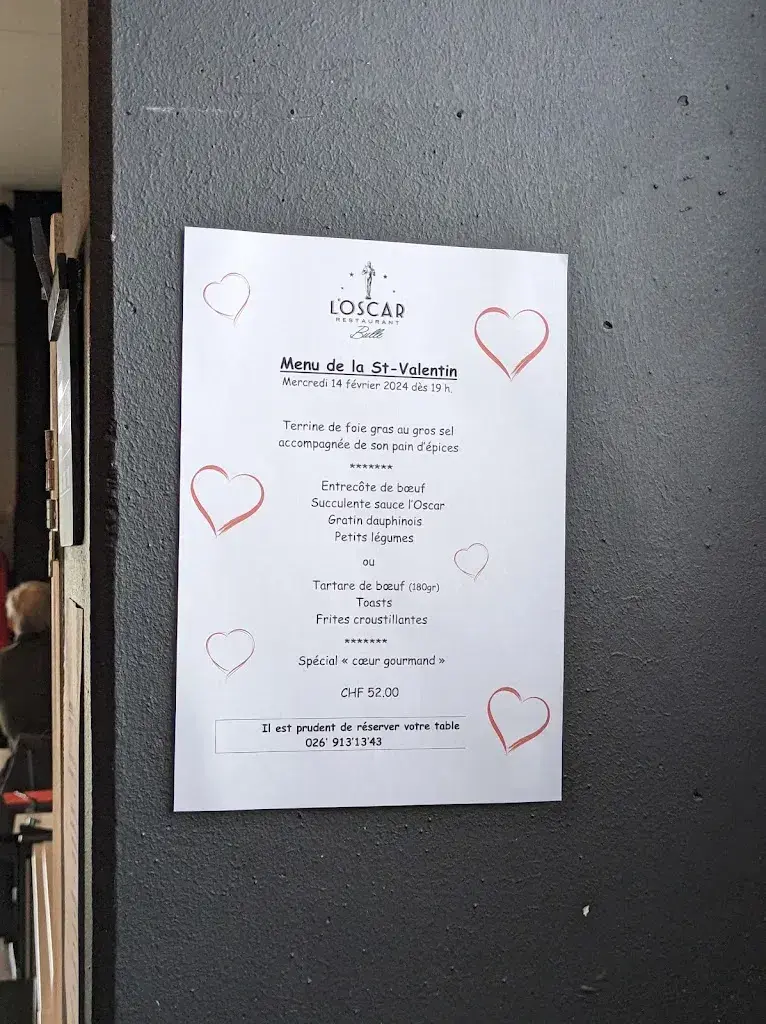 L'OSCAR
RESTAURANT
Bulle
Menu de la St-Valentin
Mercredi 14 février 2024 dès 19 h.
Terrine de foie gras au gros sel
accompagnée de son pain d'épices
*******
Entrecôte de bœuf
Succulente sauce l'Oscar
Gratin dauphinois
Petits légumes
ou
Tartare de bœuf (180gr)
Toasts
Frites croustillantes
*******
Spécial « cœur gourmand »
CHF 52.00
Il est prudent de réserver votre table
026' 913'13'43